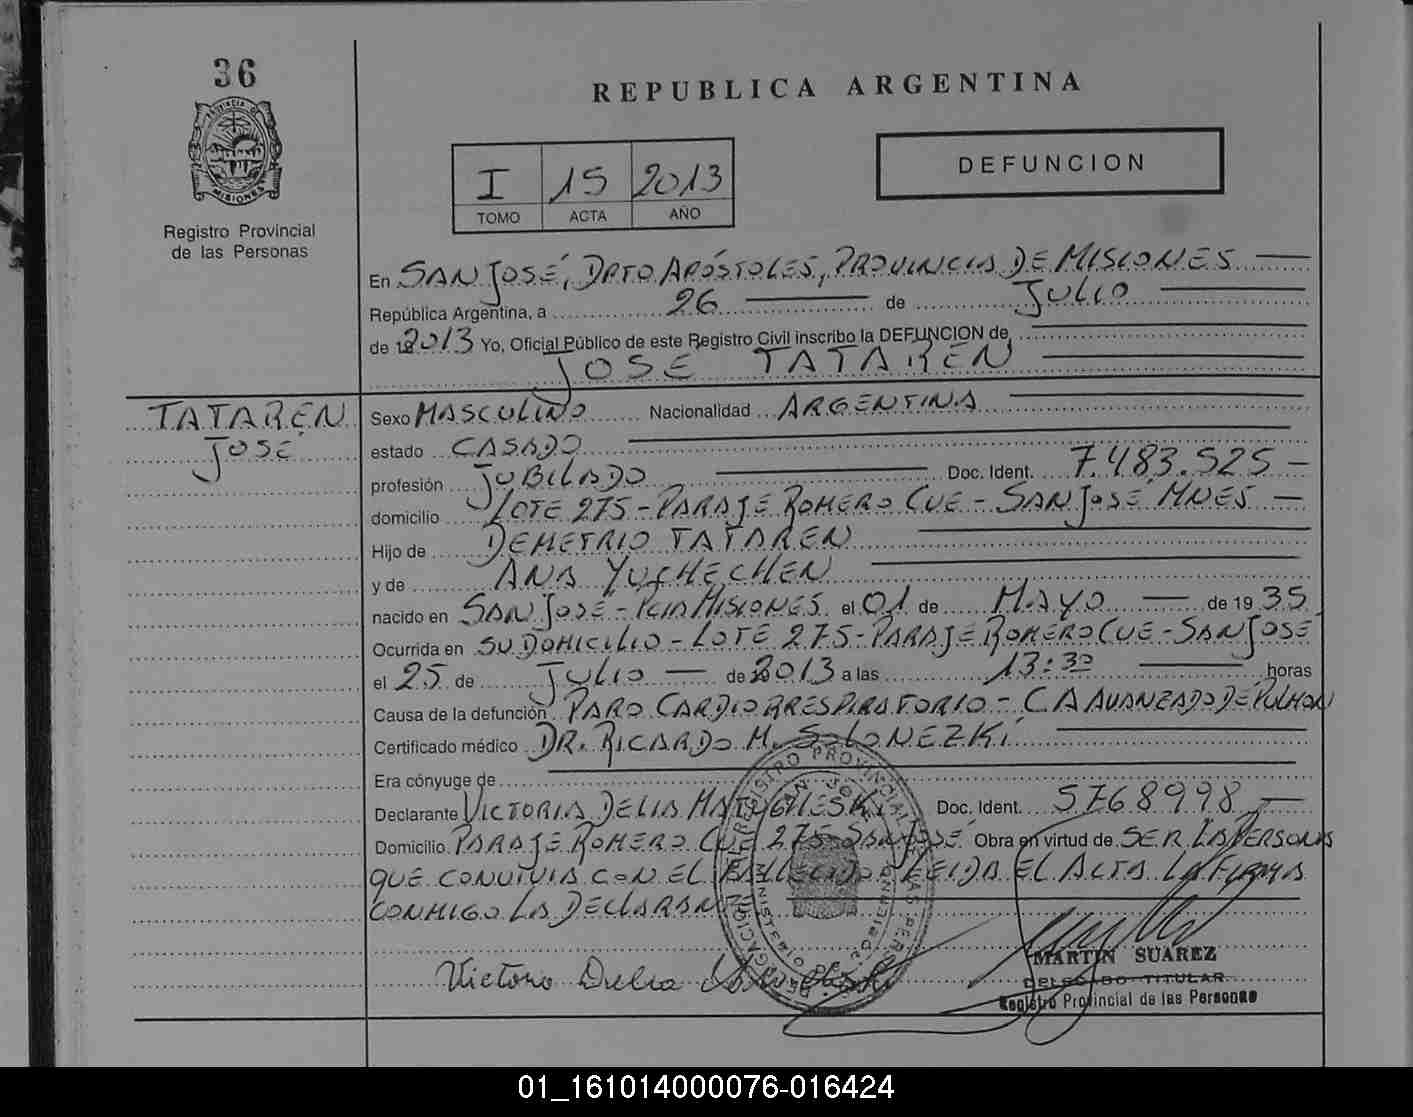 36
PROVINCIA DE
MISIONES
Registro Provincial
de las Personas
REPUBLICA ARGENTINA
I 15 2013
TOMO ACTA AÑO
DEFUNCION
En SAN JOSÉ, DPTO APÓSTOLES, PROVINCIA DE MISIONES
República Argentina, a 26 de JULIO
de 2013 Yo, Oficial Público de este Registro Civil inscribo la DEFUNCION de
JOSE TATAREN
TATAREN
JOSÉ
Sexo MASCULINO Nacionalidad ARGENTINA
estado CASADO
profesión JUBILADO Doc. Ident. 7.483.525
domicilio LOTE 275 - PARAJE ROMERO CUE - SAN JOSÉ MNES
Hijo de DEMETRIO TATAREN
y de ANA YUSCHECHEN
nacido en SAN JOSÉ - PCIA MISIONES el 01 de MAYO de 1935
Ocurrida en SU DOMICILIO - LOTE 275 - PARAJE ROMERO CUE - SAN JOSÉ
el 25 de JULIO de 2013 a las 13:30 horas
Causa de la defunción PARO CARDIORRESPIRATORIO - CA AVANZADO DE PULMON
Certificado médico DR. RICARDO M. SOLONEZKI
Era cónyuge de
Declarante VICTORIA DELIA Doc. Ident. 5768998
Domicilio PARAJE ROMERO CUE 275 SAN JOSÉ Obra en virtud de SER LA PERSONA
QUE CONVIVIA CON EL FALLECIDO LEIDA EL ACTA LA FIRMA
CONMIGO LA DECLARANTE
REGISTRO PROVINCIAL DE LAS PERSONAS
SAN JOSE
Victoria Delia
MARTIN SUAREZ
DELEGADO TITULAR
Registro Provincial de las Personas
01_161014000076-016424